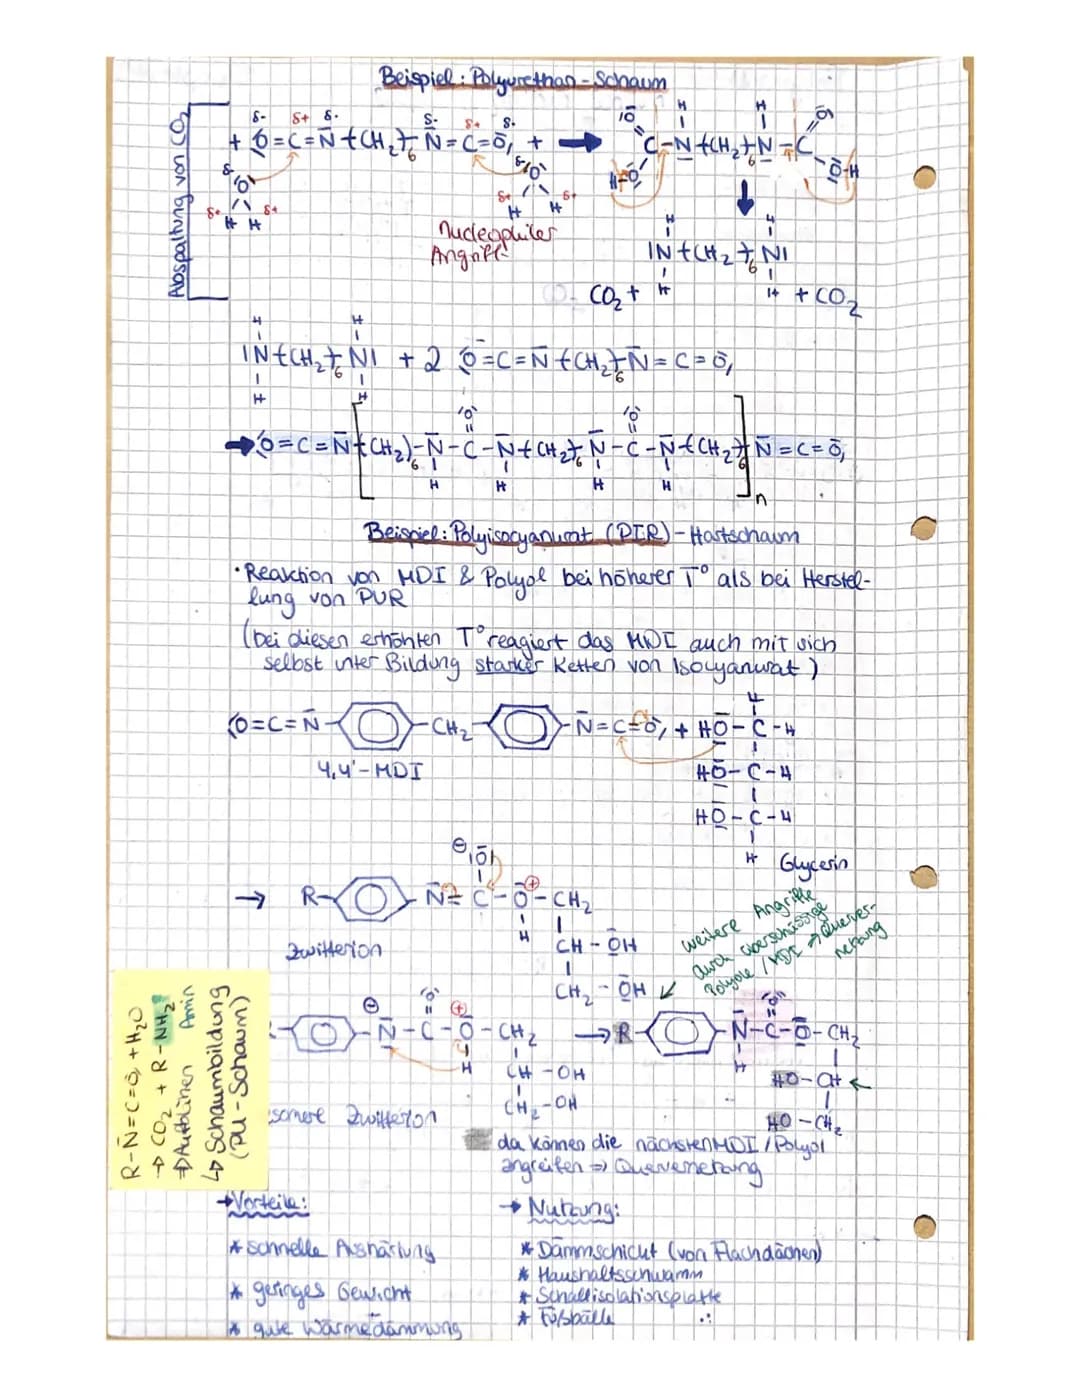 Beispiel: Polyurethan-Schaum
Abspaltung von CO₂
δ- δ+ δ- δ- δ+ δ-
+ O=C=N-(CH₂)₆-N=C=O + → O=C-N-(CH₂)₆-N-C=O
H-O O-H
H H
δ- O δ- O
δ+ δ+ δ+ δ+
H H H H
Nucleophiler
Angriff
H H
|N-(CH₂)₆-N|
H H
CO₂ + + CO₂
H H
|N-(CH₂)₆-N| + 2 O=C=N-(CH₂)₆-N=C=O
H H
O O
→ O=C=N[(CH₂)₆-N-C-N-(CH₂)₆-N-C-N-(CH₂)₆]N=C=O
H H H H
n
Beispiel: Polyisocyanurat (PIR)-Hartschaum
•Reaktion von MDI & Polyol bei höherer T° als bei Herstel-
lung von PUR
(bei diesen erhöhten T° reagiert das MDI auch mit sich
selbst unter Bildung starker Ketten von Isocyanurat)
H
O=C=N- -CH₂- -N=C=O + HO-C-H
4,4'-MDI
HO-C-H
HO-C-H
H Glycerin
⊖ |O|
→ R- N=C-O⊕-CH₂
H
Zwitterion
CH-OH
CH₂-OH
weitere Angriffe
durch überschüssige
Polyole/MDI → Querver-
netzung
⊖ O ⊕ O
-N-C-O-CH₂ → R- -N-C-O-CH₂
H H
CH-OH HO-CH ←
CH₂-OH HO-CH₂
Zwitterion
da können die nächsten MDI/Polyol
angreifen ⇒ Quervernetzung
R-N=C=O + H₂O
→ CO₂ + R-NH₂
⇒ Aufblähen Amin
↳ Schaumbildung
(PU-Schaum)
→ Vorteile:
* schnelle Aushärtung
* geringes Gewicht
* gute Wärmedämmung
→ Nutzung:
* Dämmschicht (von Flachdächen)
* Haushaltsschwamm
* Schallisolationsplatte
* Fußbälle